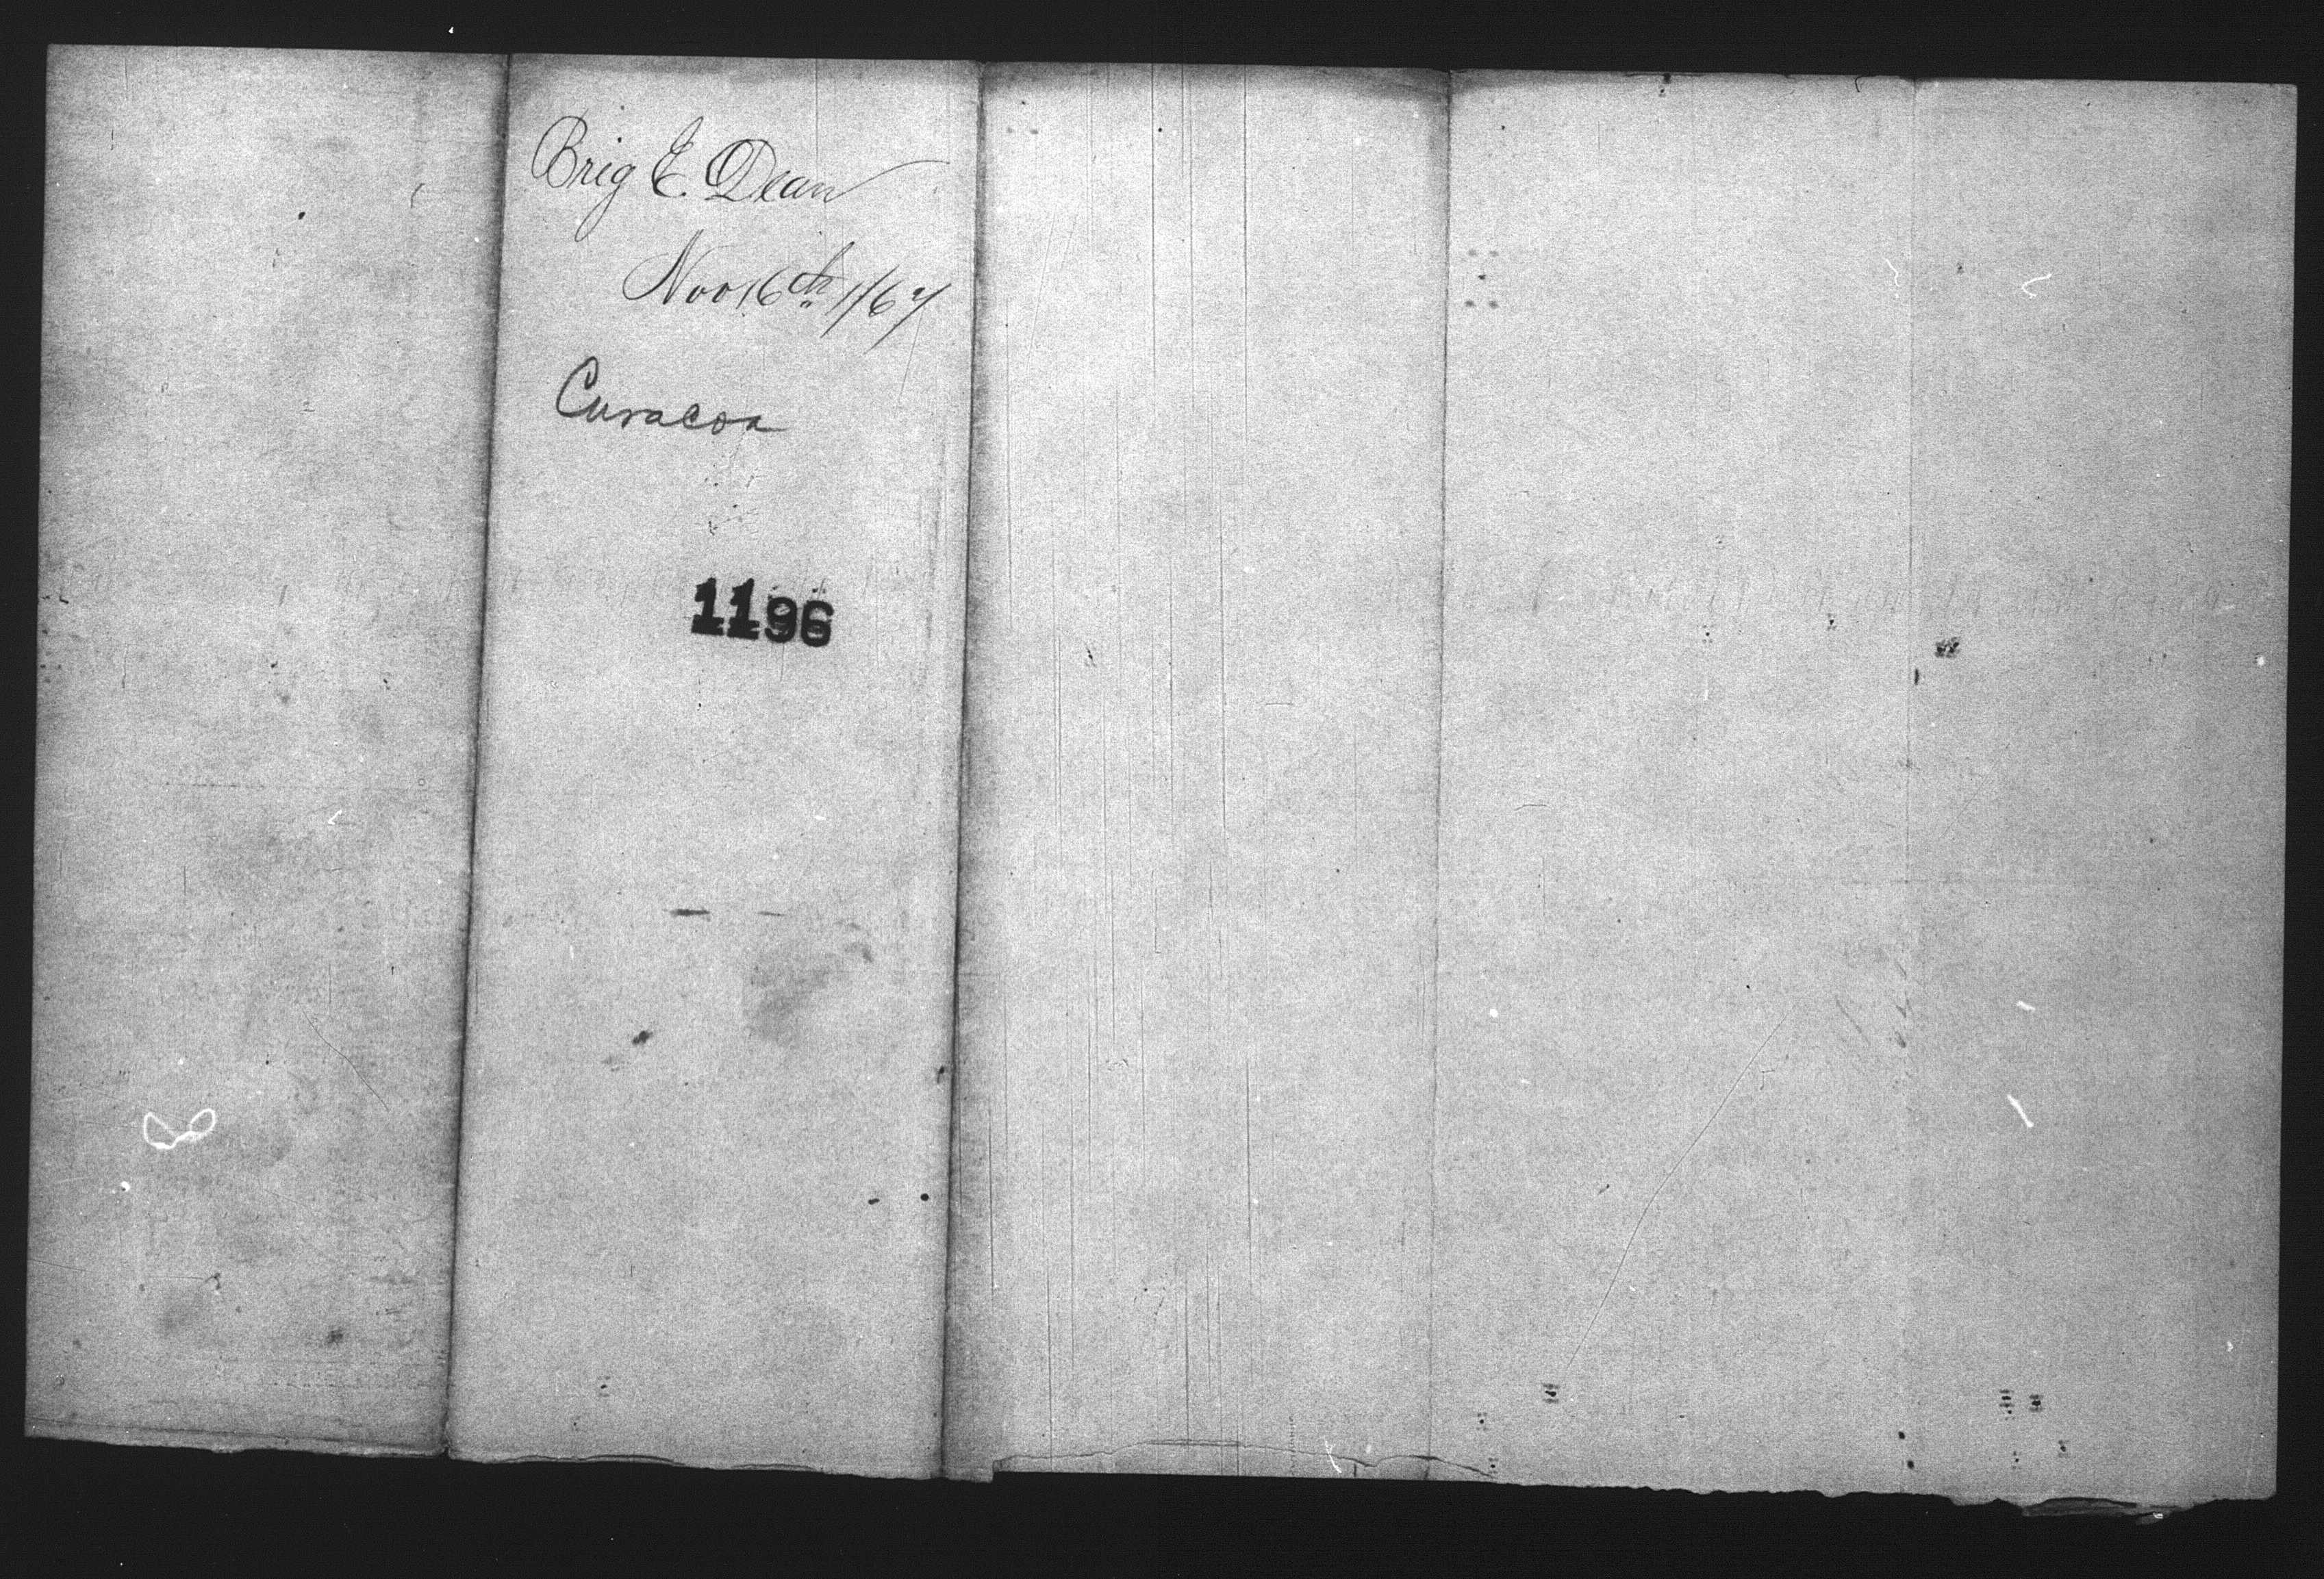 Brig E. Dean
Nov 16th 1/67
Curacoa
1196